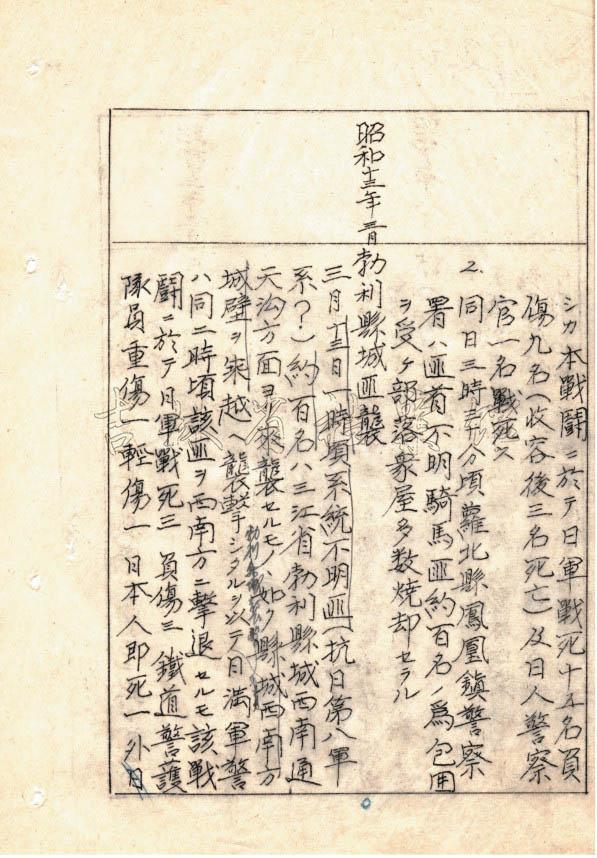 シカ本戦闘ニ於テ日軍戦死十五名負
傷九名(收容後三名死亡)及日人警察
官一名戦死ス
2. 同日三時三十分頃蘿北縣鳳凰鎮警察
署ハ匪首不明騎馬匪約百名ノ為包囲
ヲ受ケ部落衆屋多数焼却セラル
昭和十三年三月勃利縣城匪襲
三月十三日一時頃系統不明匪(抗日第八軍
系?)約一百名ハ三江省勃利縣城西南通
天沟方面ヨリ来襲セルモノノ如ク縣城西南方
城壁ヲ乗越ヘ襲撃シタルヲ以テ日満軍警
ハ同二時頃該匪ヲ西南方ニ撃退セルモ該戦
闘ニ於テ日軍戦死三 負傷三 鐵道警護
隊員重傷一輕傷一 日本人即死一外